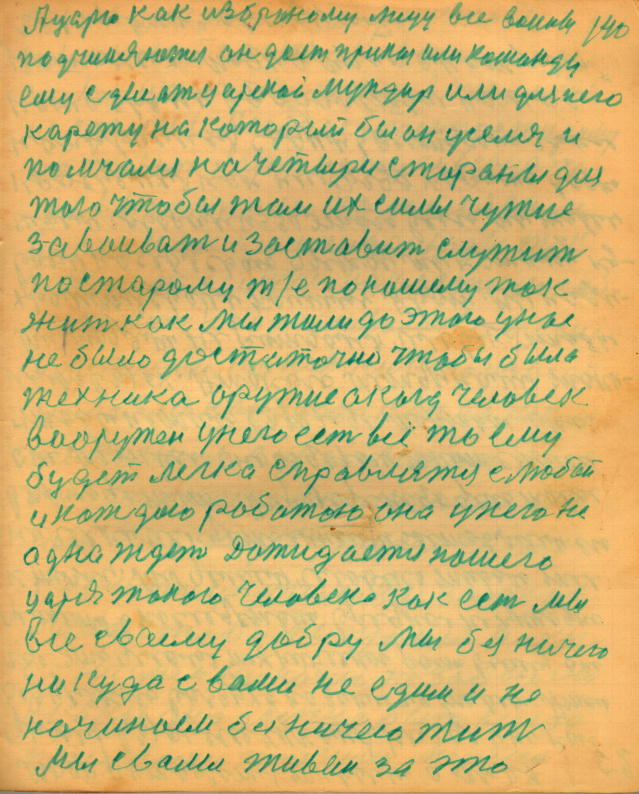 Ацарю как избраному лицу все воины 140
подчиняются он даст приказ или команду
ему сделат царской мундир или для него
карету на который бы он уселся и
помчался на четыри стораны для
того чтобы там их силы чужие
заваиват и заставит служит
по старому т/е по нашему так
жит как мы жили до этого у нас
не было достаточно чтобы была
техника оружие а когда человек
вооружен у него ест всё то ему
будет легка справлятся с любой
и каждою работою она у него не
одна ждет Дожидается нашего
царя такого человека как ест мы
все своему добру мы без ничего
никуда с вами не едим и не
начинаем без ничего жит
Мы с вами живем за это